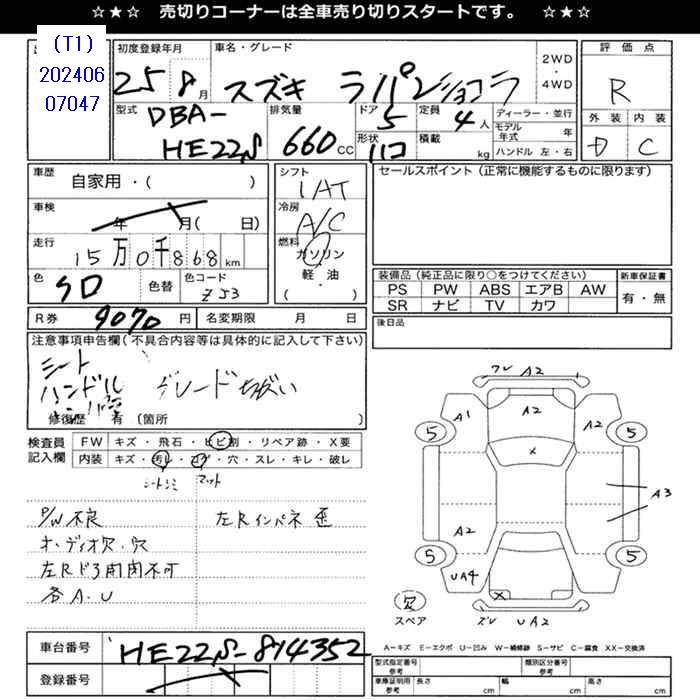 ☆★☆ 売切りコーナーは全車売り切りスタートです。 ☆★☆
(T1)
202406
07047
初度登録年月 車名・グレード 2WD ・ 4WD 評価点
25 8月 スズキ ラパンショコラ R
型式 排気量 ドア 定員 ディーラー・並行 外装 内装
DBA- 5 4人 モデル年式 年 D C
HE22S 660cc 形状 積載 kg ハンドル 左・右
車歴 自家用・( ) シフト 1AT セールスポイント(正常に機能するものに限ります)
車検 年 月( 日) 冷房 A/C
走行 15万0千868km 燃料 ガソリン 軽・油 ( )
色 色替 色コード Z53
装備品(純正品に限り○をつけてください) 新車保証書
PS PW ABS エアB AW 有・無
SR ナビ TV カワ
R券 9070円 名変期限 月 日 後日品
注意事項申告欄(不具合内容等は具体的に記入して下さい)
シート
ハンドル グレードちがい
修復歴 有 (箇所 )
検査員記入欄 FW キズ・飛石・ヒビ割・リペア跡・X要
内装 キズ・汚レ・コゲ・穴・スレ・キレ・破レ
シートシミ マット
P/W不良 左Rインパネ歪
オーディオ欠.穴
左Rドア開閉不可
各A.U
A2
A1 A2 A2
5 5
×
A3
A2
5 5
UA4 ×
欠 スペア ズレ UA2
A-キズ E-エクボ U-凹み W-補修跡 S-サビ C-腐食 XX-交換済
車台番号 HE22S-814352
登録番号
型式指定番号 参考 類別区分番号 参考
車庫証明用 参考 長さ cm 幅 cm 高さ cm